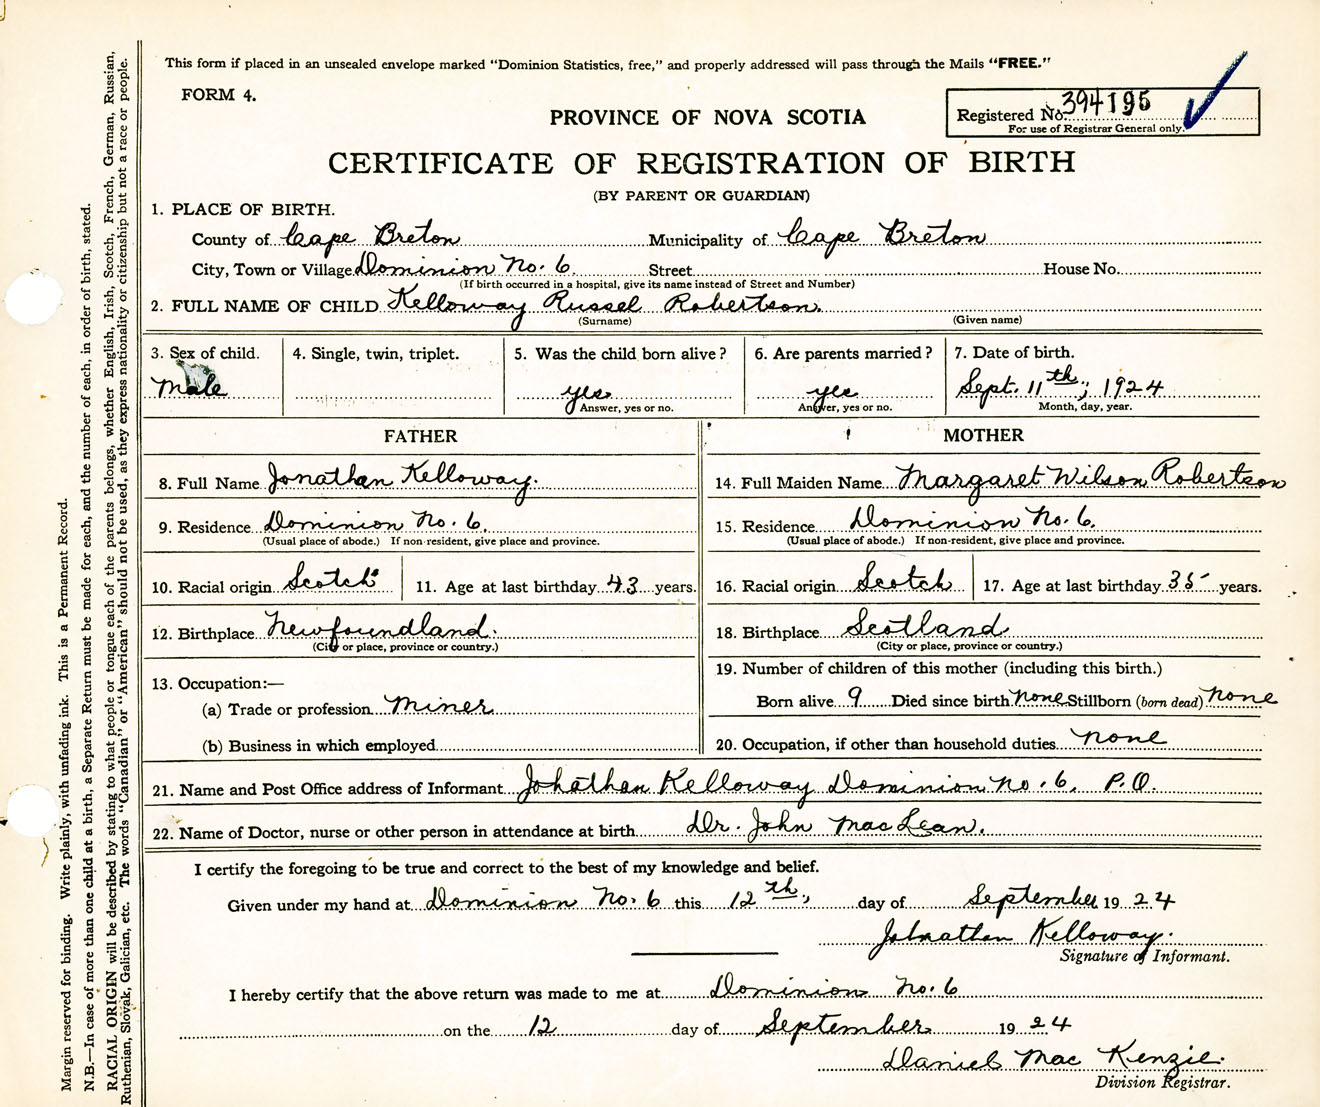 This form if placed in an unsealed envelope marked "Dominion Statistics, free," and properly addressed will pass through the Mails "FREE."
FORM 4.
PROVINCE OF NOVA SCOTIA
Registered No. 394195
For use of Registrar General only.
CERTIFICATE OF REGISTRATION OF BIRTH
(BY PARENT OR GUARDIAN)
1. PLACE OF BIRTH.
County of Cape Breton Municipality of Cape Breton
City, Town or Village Dominion No. 6 Street House No.
(If birth occurred in a hospital, give its name instead of Street and Number)
2. FULL NAME OF CHILD Kelloway Russel Robertson.
(Surname) (Given name)
3. Sex of child. 4. Single, twin, triplet. 5. Was the child born alive? 6. Are parents married? 7. Date of birth.
Male yes yes Sept. 11th, 1924
Answer, yes or no. Answer, yes or no. Month, day, year.
FATHER MOTHER
8. Full Name Jonathan Kelloway. 14. Full Maiden Name Margaret Wilson Robertson
9. Residence Dominion No. 6. 15. Residence Dominion No. 6.
(Usual place of abode.) If non-resident, give place and province. (Usual place of abode.) If non-resident, give place and province.
10. Racial origin Scotch 11. Age at last birthday 43 years. 16. Racial origin Scotch 17. Age at last birthday 35 years.
12. Birthplace Newfoundland. 18. Birthplace Scotland
(City or place, province or country.) (City or place, province or country.)
19. Number of children of this mother (including this birth.)
13. Occupation:—
(a) Trade or profession Miner Born alive 9 Died since birth none Stillborn (born dead) none
(b) Business in which employed 20. Occupation, if other than household duties none
21. Name and Post Office address of Informant Johathan Kelloway Dominion No. 6. P.O.
22. Name of Doctor, nurse or other person in attendance at birth Dr. John MacLean.
I certify the foregoing to be true and correct to the best of my knowledge and belief.
Given under my hand at Dominion No. 6 this 12th, day of September 1924
Johnathan Kelloway.
Signature of Informant.
I hereby certify that the above return was made to me at Dominion No. 6
on the 12 day of September 1924
Daniel MacKenzie.
Division Registrar.
Margin reserved for binding. Write plainly, with unfading ink. This is a Permanent Record.
N.B.—In case of more than one child at a birth, a Separate Return must be made for each, and the number of each, in order of birth, stated.
RACIAL ORIGIN will be described by stating to what people or tongue each of the parents belongs, whether English, Irish, Scotch, French, German, Russian,
Ruthenian, Slovak, Galician, etc. The words "Canadian" or "American" should not be used, as they express nationality or citizenship but not a race or people.